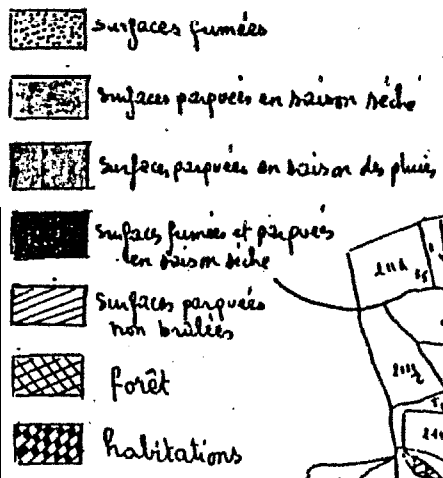 Surfaces fumées
Surfaces parquées en saison séche
Surfaces parquées en saison des pluies
Surfaces fumées et parquées
en saison séche
Surfaces parquées
non brûlées
forêt
habitations